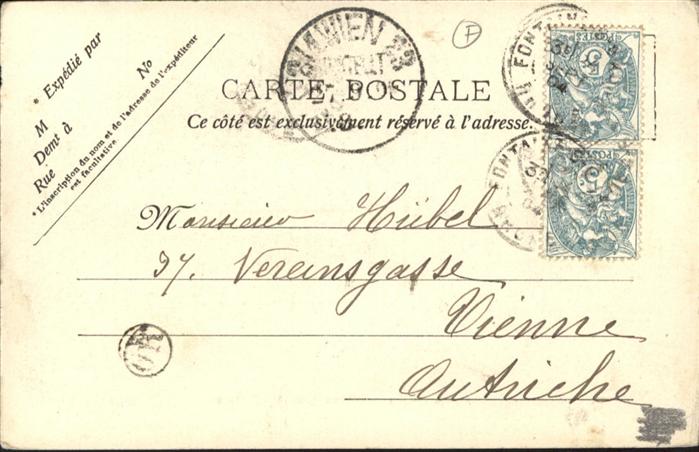 * Expédié par
No
M
Demt à
Rue
*L'inscription du nom et de l'adresse de l'expéditeur
est facultative.
WIEN
CARTE POSTALE
Ce côté est exclusivement réservé à l'adresse.
F
POSTES
5
POSTES
5
Monsieur Hübel
37, Vereinsgasse
Vienne
Autriche